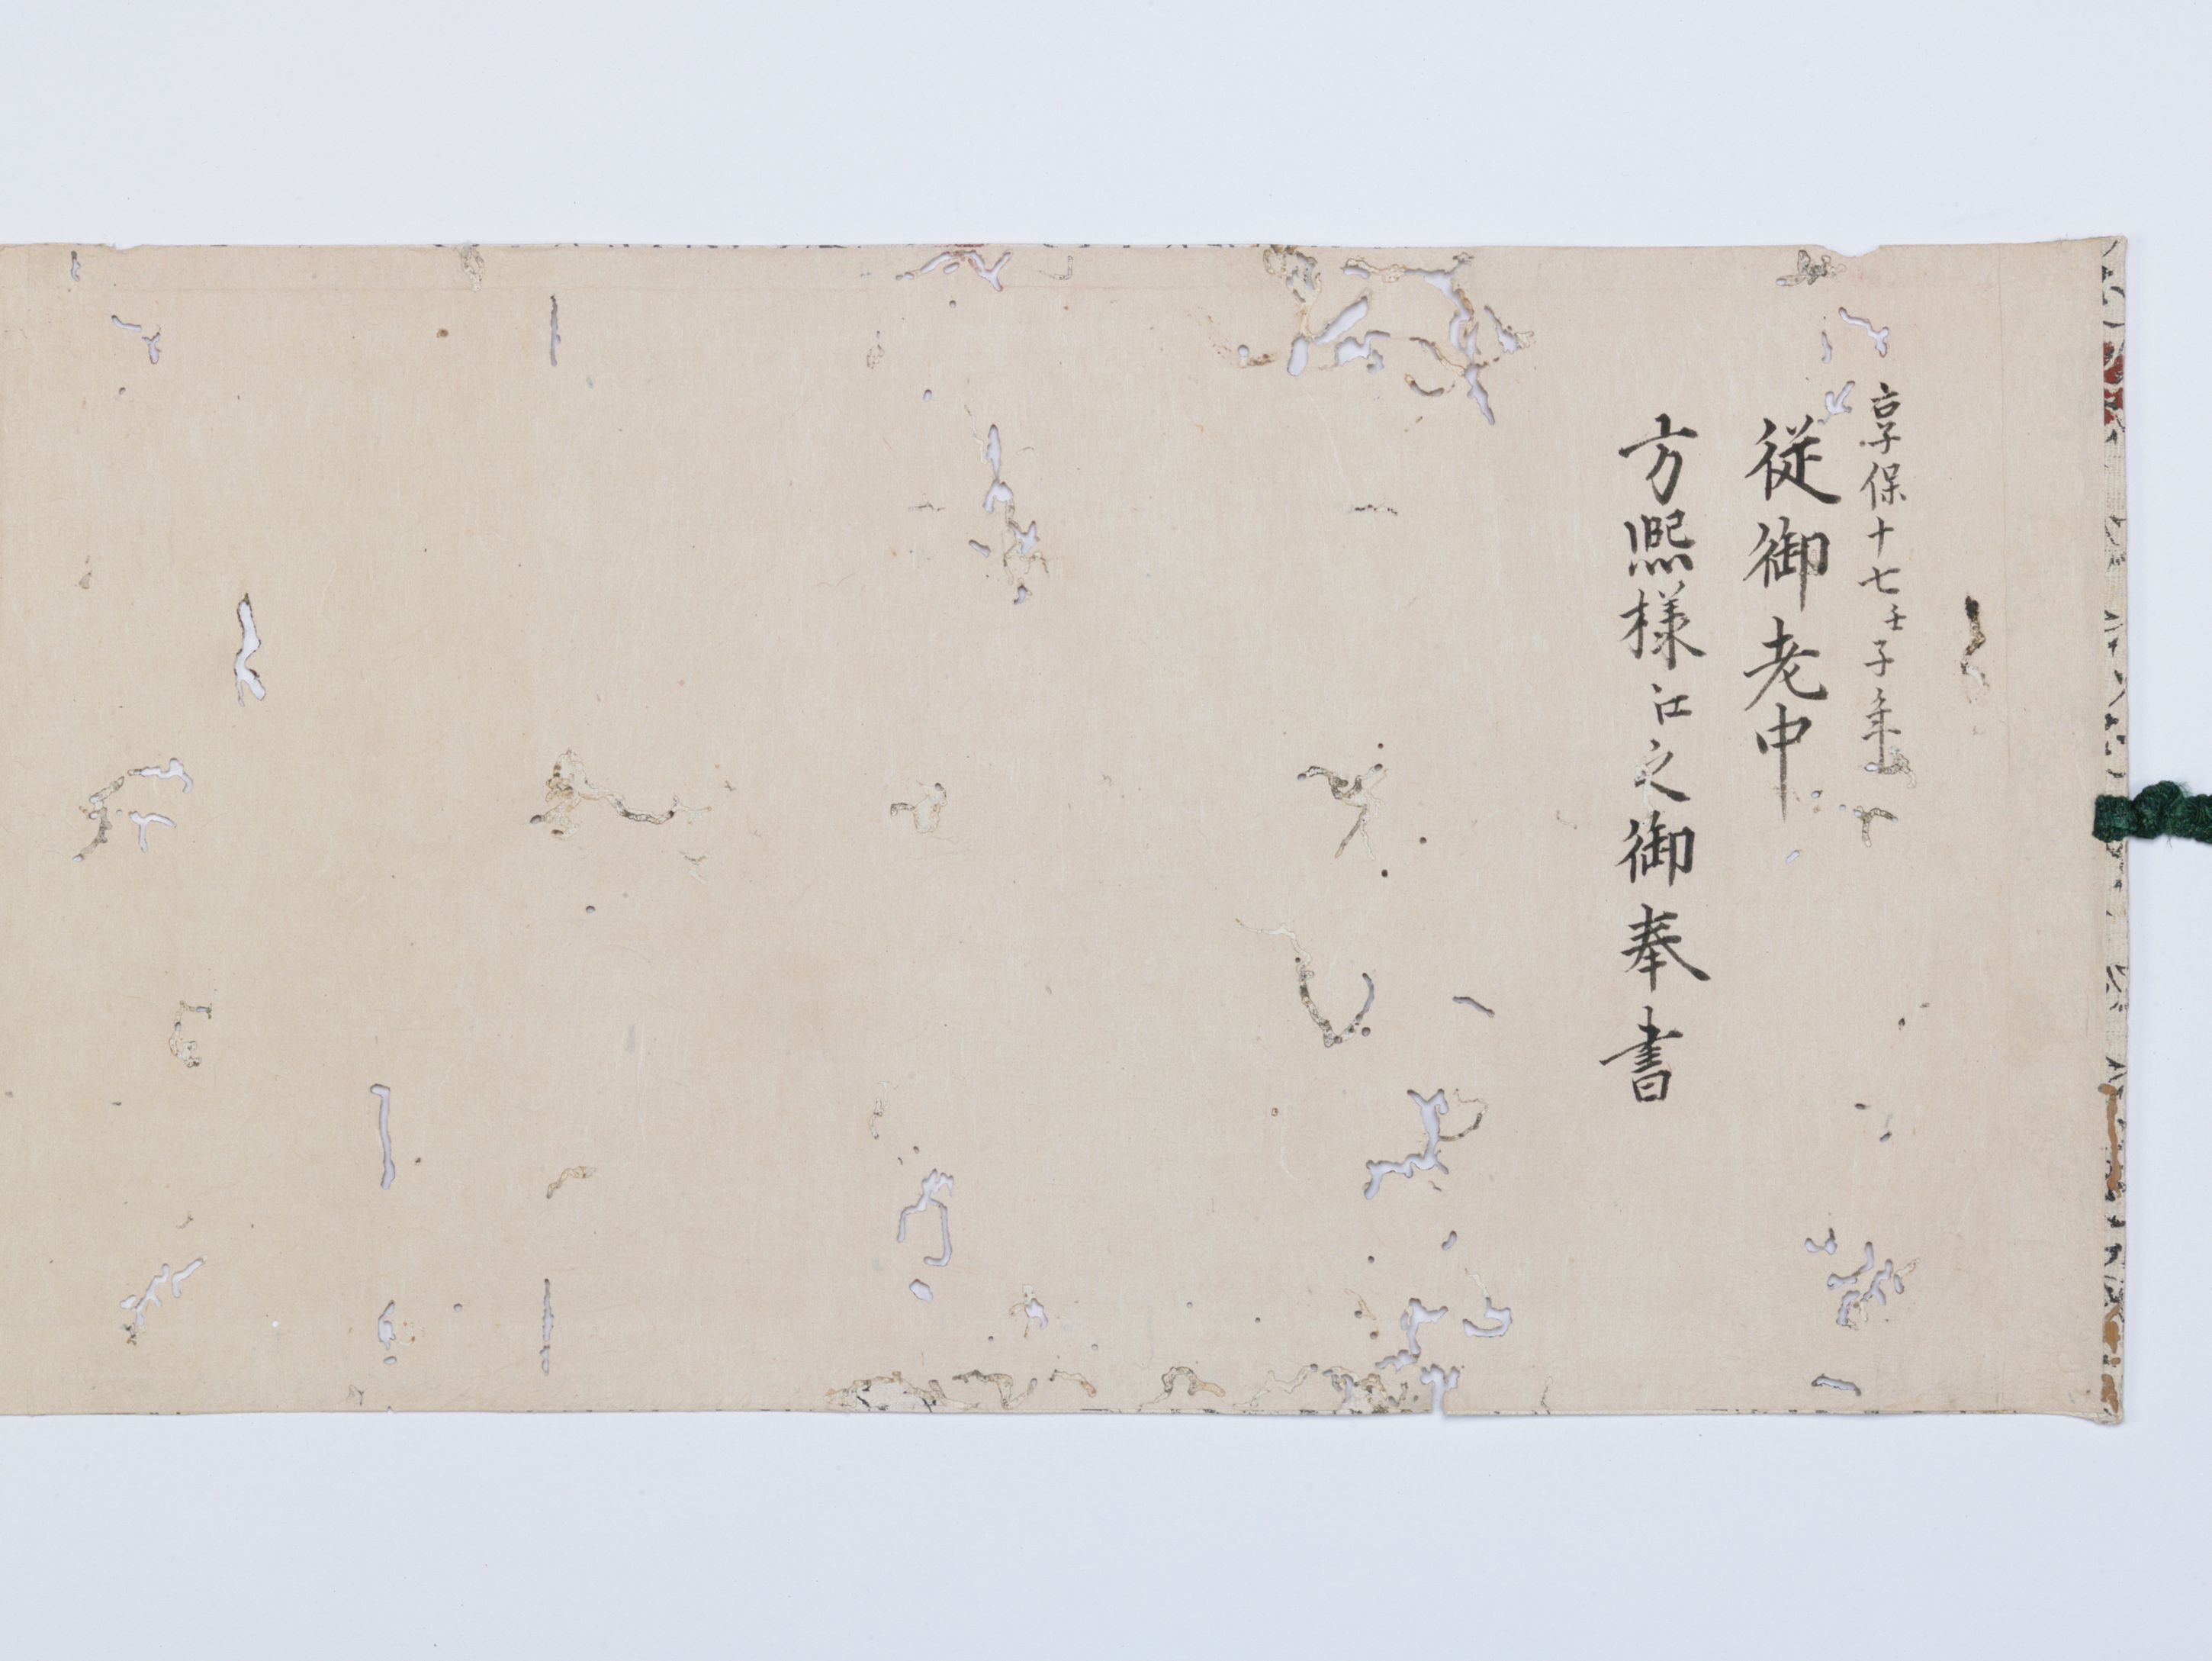 享保十七壬子年
従御老中
方熈様江之御奉書